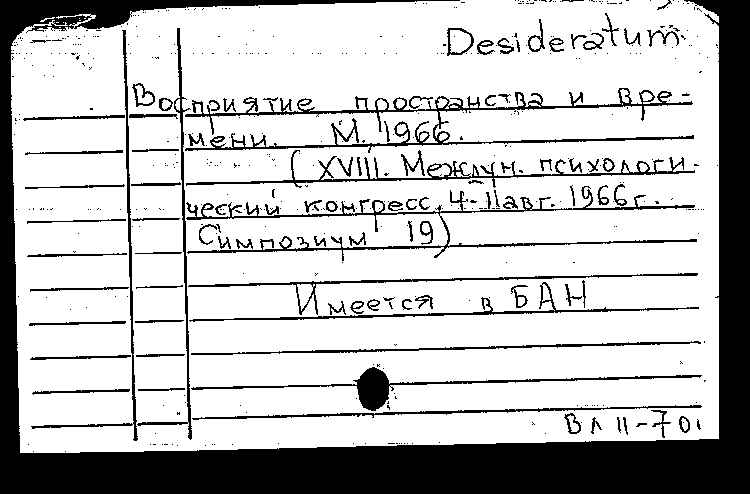 Desideratum
Восприятие пространства и вре-
мени. М. 1966.
(XVIII. Междун. психологи-
ческий конгресс, 4-11 авг. 1966 г.
Симпозиум 19)
Имеется в БАН
Вл II-70